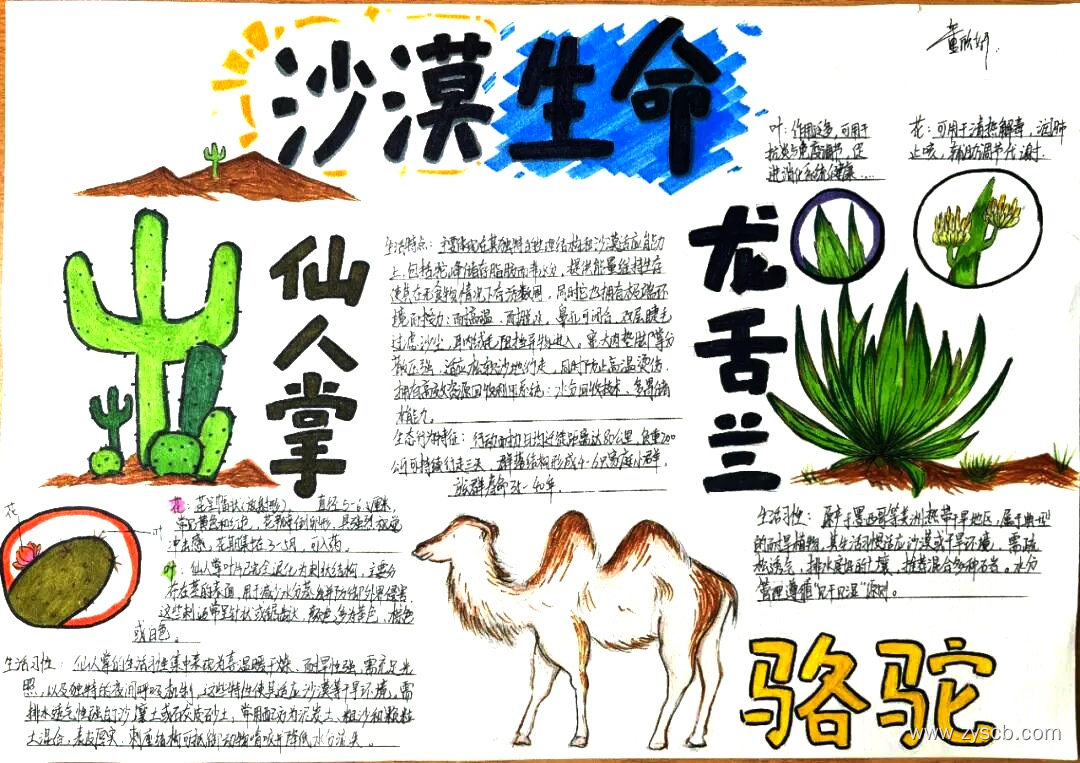 沙漠生命
董欣妍
叶：作用广泛，可用于
抗炎与免疫调节，促
进消化系统健康……
花：可用于清热解毒，润肺
止咳，辅助调节代谢．
仙人掌
龙舌兰
生活特点：主要体现在其独特的生理结构和沙漠适应能力
上．包括驼峰储存脂肪而非水分，提供能量维持生存
使其在无食物情况下存活数周．同时它也拥有极端环
境耐受力：耐高温．耐脱水．鼻孔可闭合．双层睫毛
过滤沙尘，耳内绒毛阻挡异物进入。宽大肉垫脚掌分
散压强，适应松软沙地行走，同时防止高温烫伤．
拥有高效资源回收利用系统：水分回收技术．多胃储
水能力。
生态行为特征：行动耐力日均迁徙距离达80公里，负重200
公斤可持续行走三天．群落结构形成4-6只家庭小群，
族群寿命35-40年．
花
叶
花：花呈漏状(放射形)． 直径5-6.5厘米，
常见黄色和红色，花瓣倒卵形，具强烈视觉
冲击感，花期集中3-5月，可入药。
叶：仙人掌叶片完全退化为刺状结构，主要分
布在茎的表面，用于减少水分蒸发并防御外界侵害，
这些刺通常呈针状或锯齿状，颜色多为黄色、褐色
或白色。
生活习性：仙人掌的生活习性集中表现为喜温暖干燥．耐旱性强．需充足光
照，以及独特的夜间呼吸机制，这些特性使其适应沙漠等干旱环境，需
排水透气性强的沙壤土或石灰质砂土，常用配方为泥炭土、粗沙和颗粒
土混合．表皮厚实．刺座结构可抵御动物啃咬并降低水分流失。
生活习性：原产于墨西哥等美洲热带干旱地区，属于典型
的耐旱植物．其生活习惯适应沙漠或干旱环境，需疏
松透气，排水良好的土壤，推荐混合多种石砾。水分
管理遵循“见干见湿”原则。
骆驼
www.zyscb.com